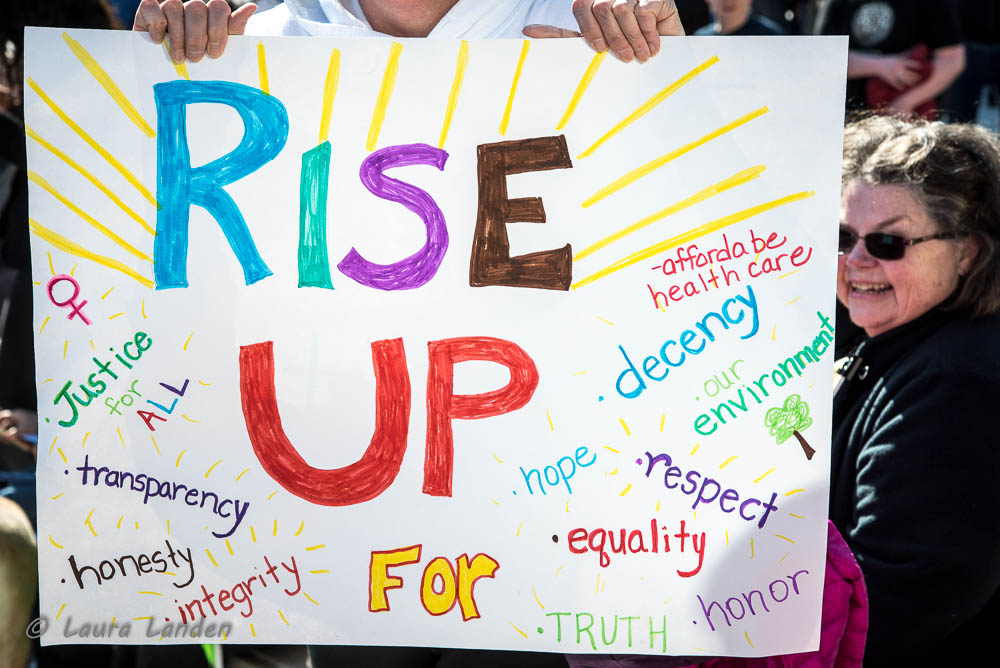 RISE
UP
For
Justice
for
ALL
• transparency
• honesty
• integrity
-affordabe
health care
• decency
• our
environment
• hope
• respect
• equality
• TRUTH
• honor
© Laura Landen